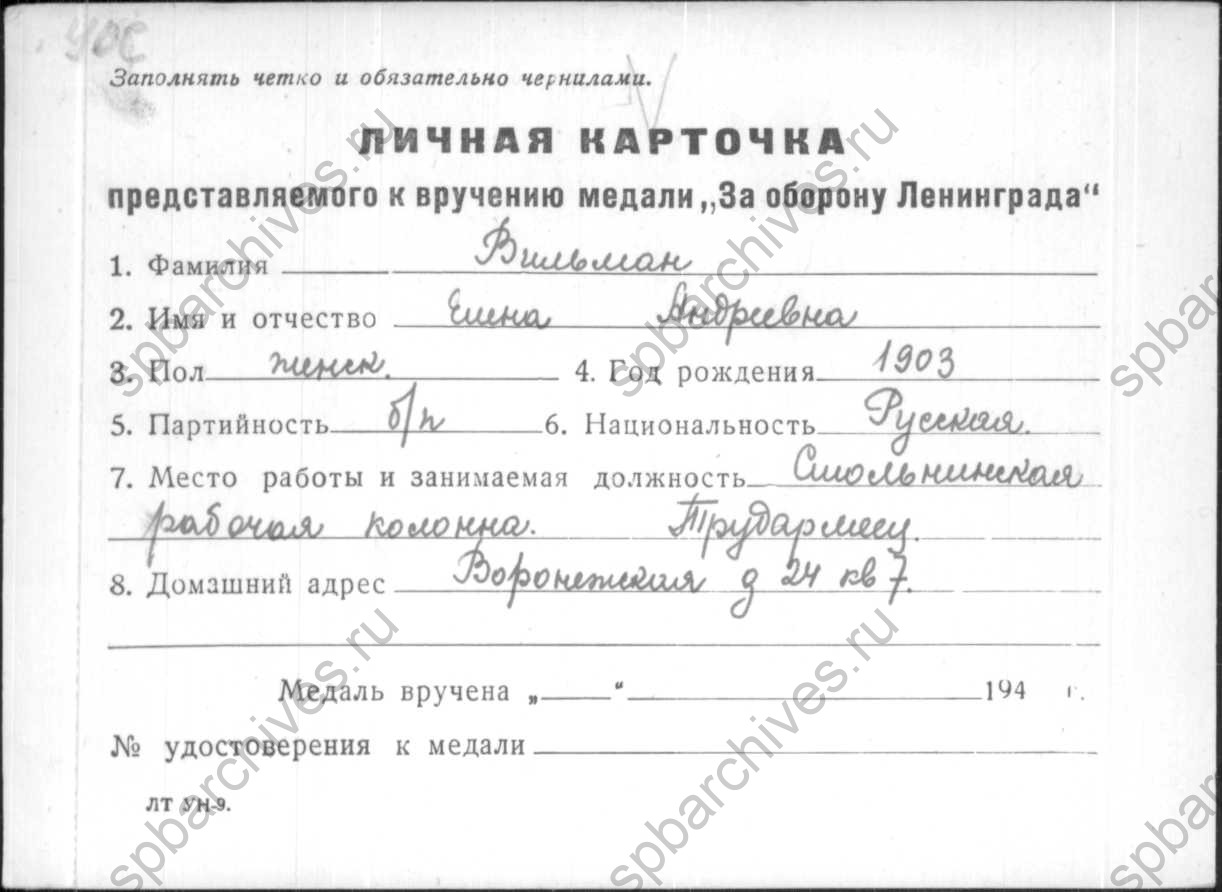 УОС
Заполнять четко и обязательно чернилами.
ЛИЧНАЯ КАРТОЧКА
представляемого к вручению медали „За оборону Ленинграда“
1. Фамилия Вильман
2. Имя и отчество Елена Андреевна
3. Пол женск. 4. Год рождения 1903
5. Партийность б/п 6. Национальность Русская.
7. Место работы и занимаемая должность Смольнинская
рабочая колонна. Трудармеец.
8. Домашний адрес Воронежская д 24 кв 7.
Медаль вручена „ “ 194 г.
№ удостоверения к медали
ЛТ УН-9.
spbarchives.ru
spbarchives.ru
spbarchives.ru
spbarchives.ru